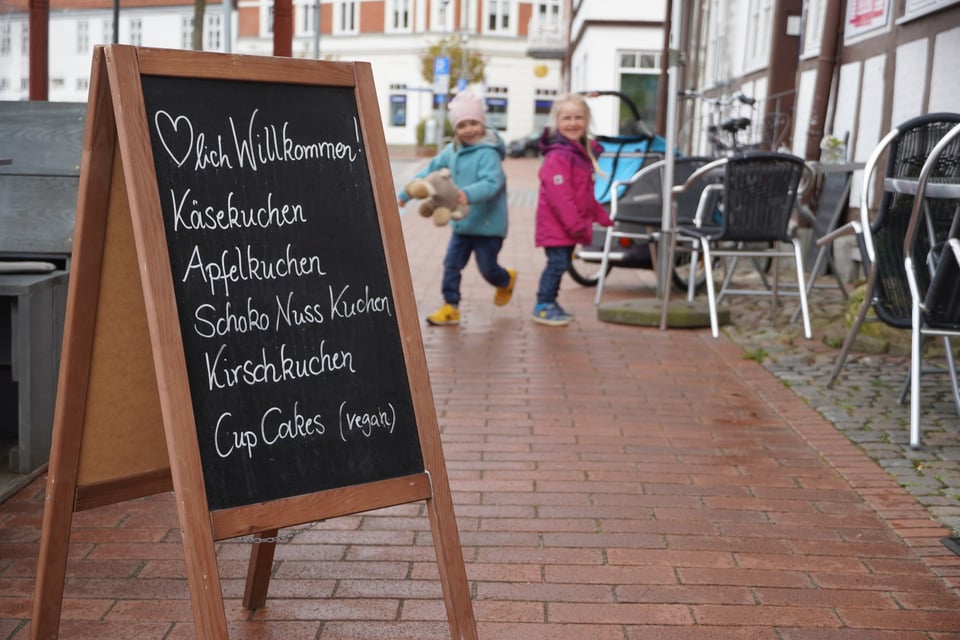 ♡lich Willkommen!
Käsekuchen
Apfelkuchen
Schoko Nuss Kuchen
Kirschkuchen
Cup Cakes (vegan)